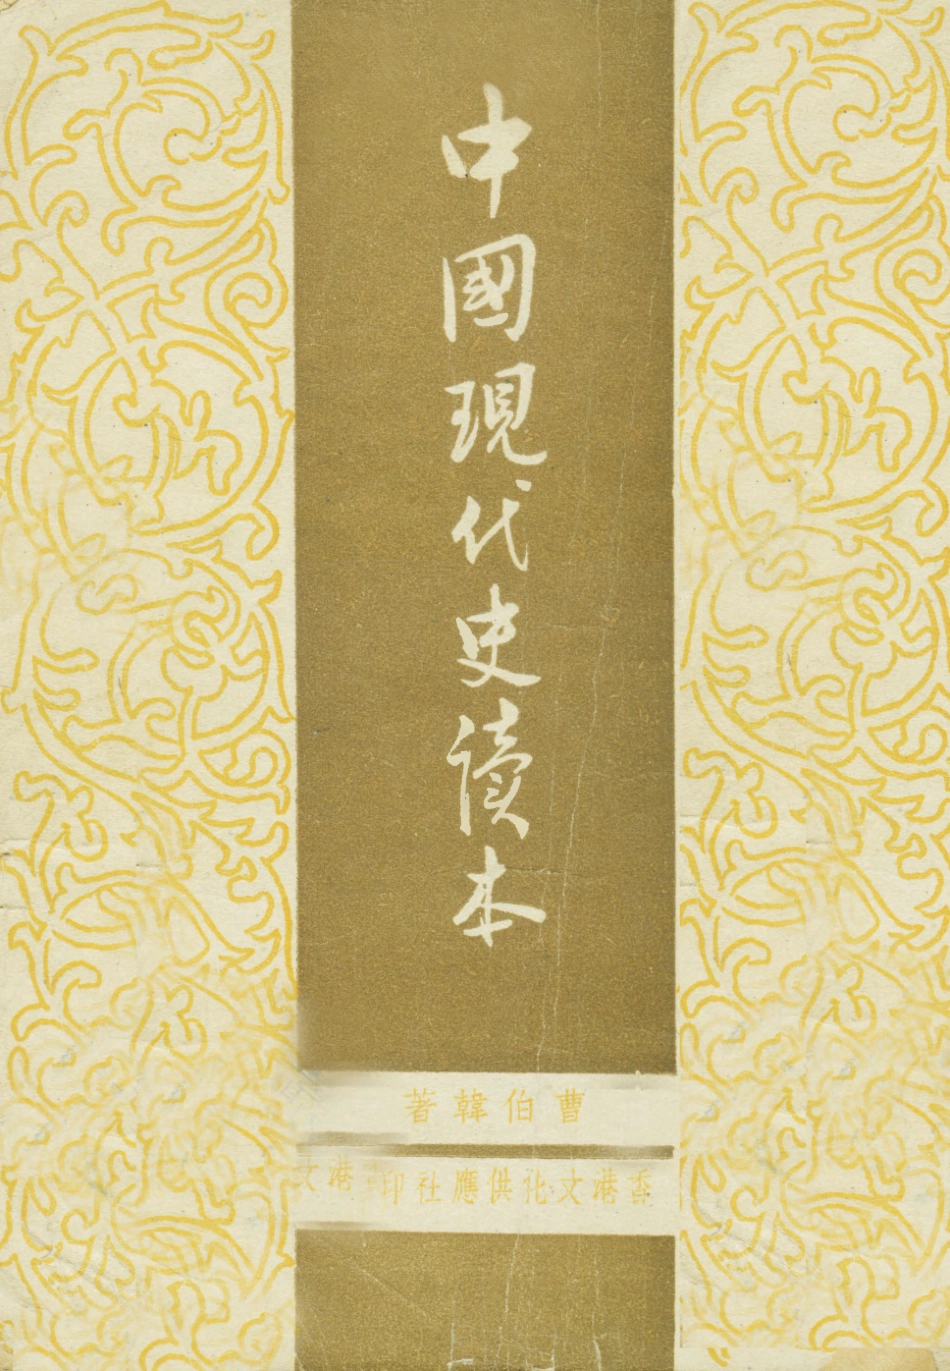 中國現代史讀本
曹伯韓著
香港文化供應社印港文